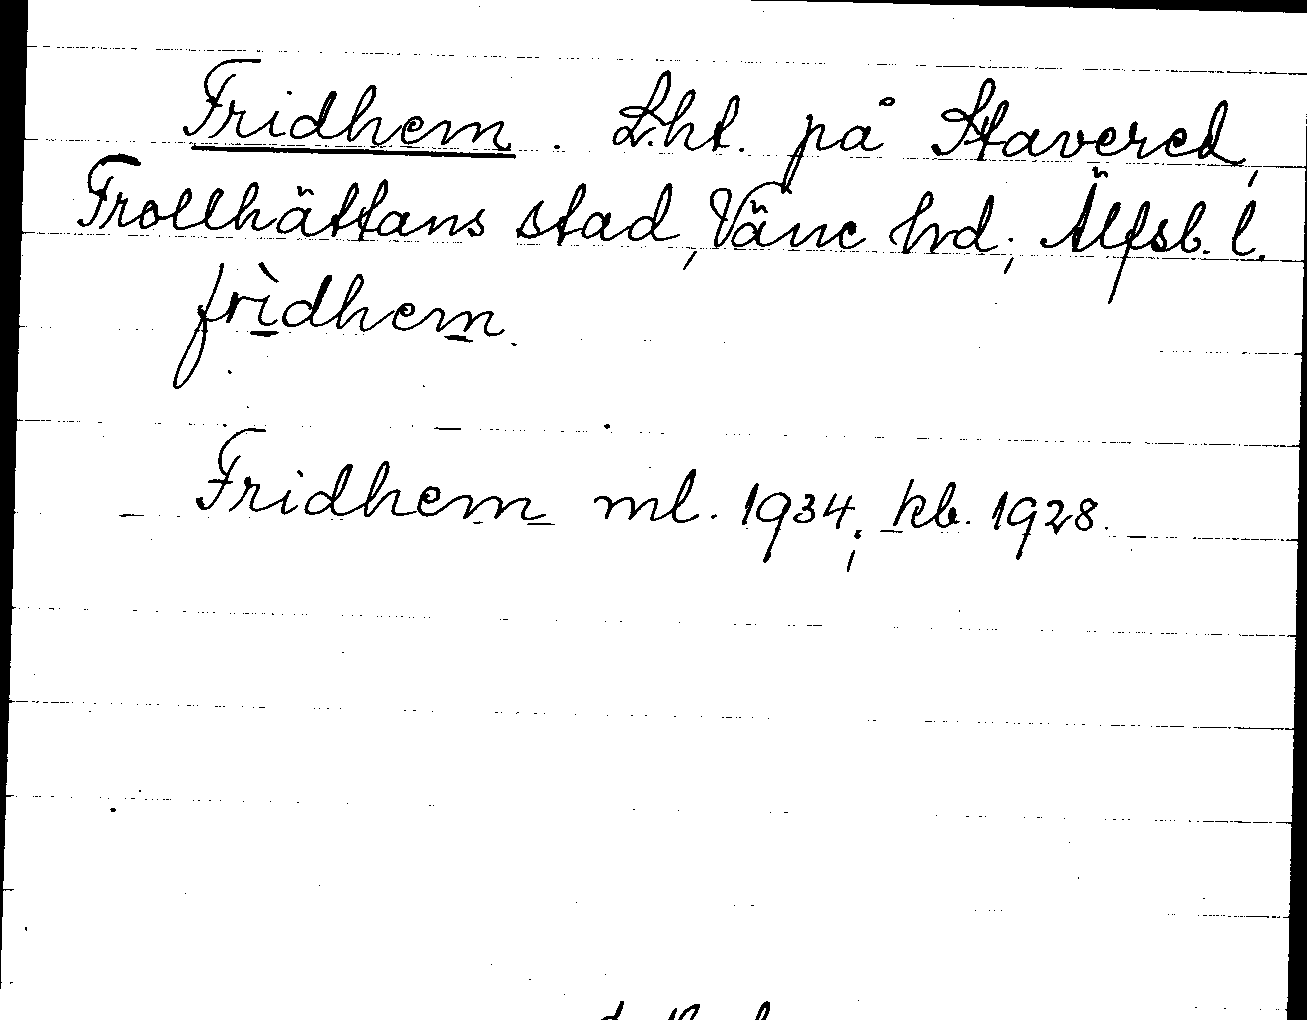 Fridhem. Lht. på Stavered,
Trollhättans stad, Väne hrd; Älfsb. l.
frìdhem.
Fridhem ml. 1934; kb. 1928.